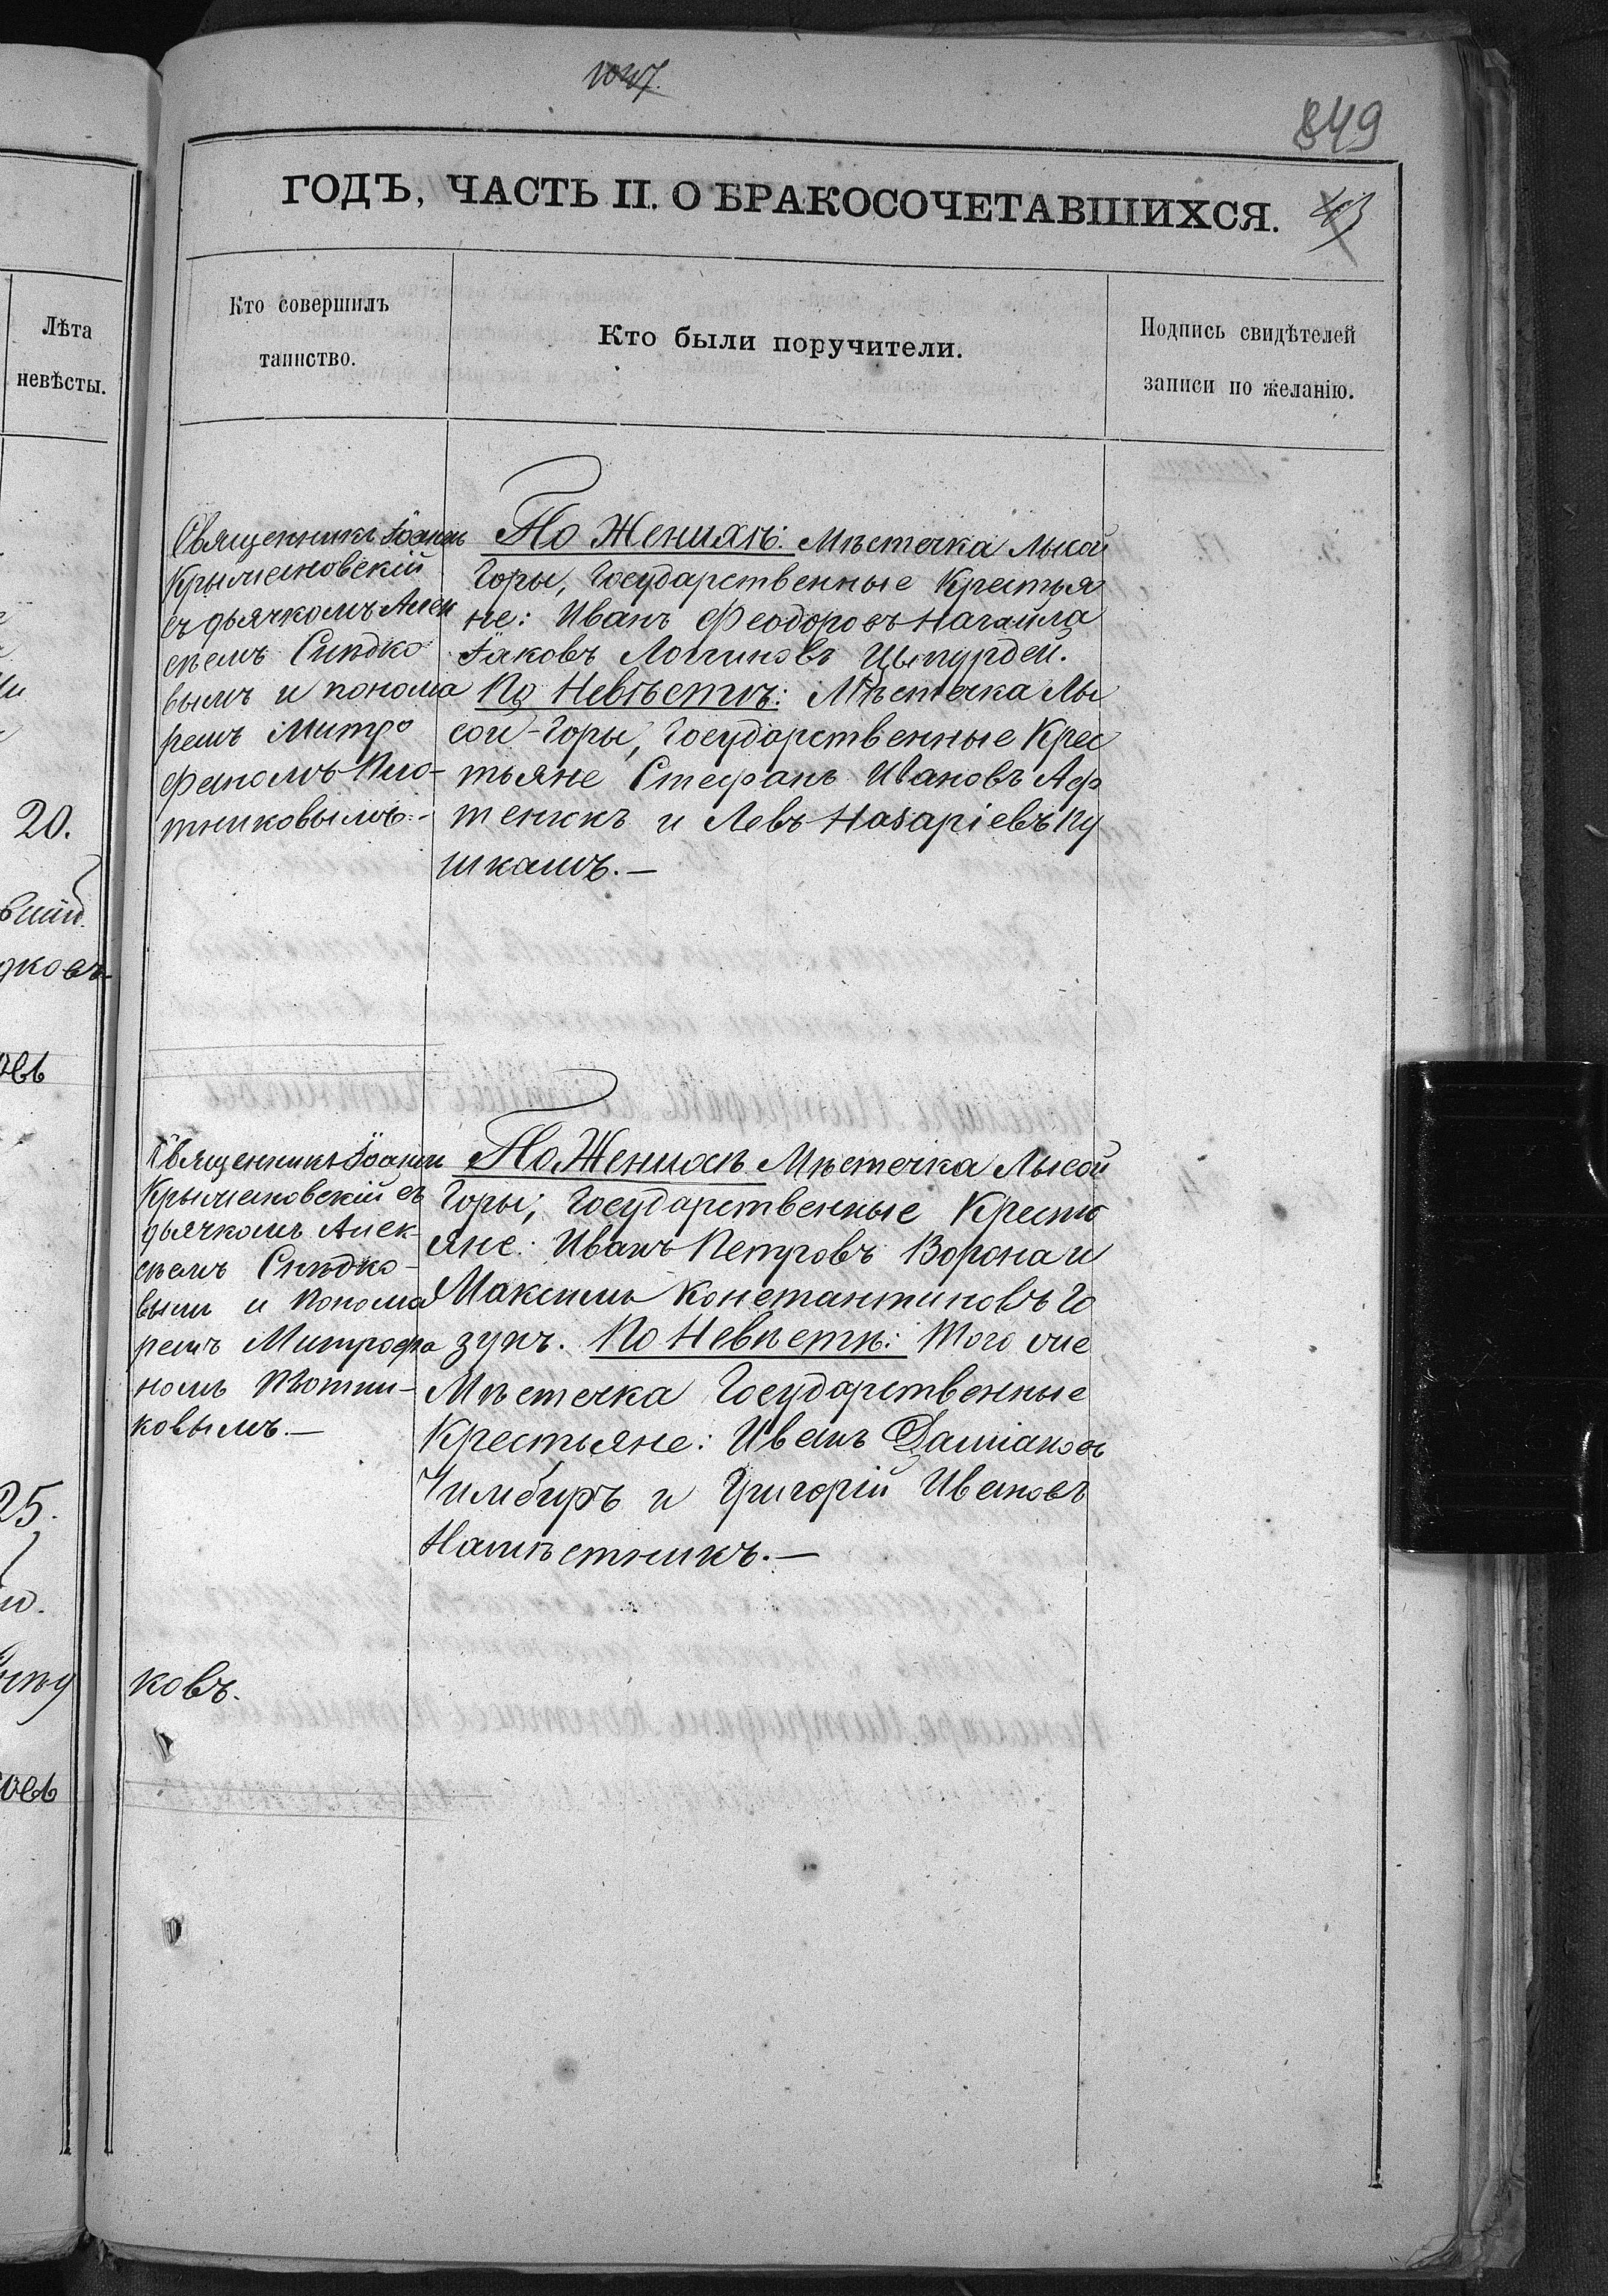 1047.
849
ГОДЪ, ЧАСТЬ II. О БРАКОСОЧЕТАВШИХСЯ.
43
Лѣта
невѣсты.
Кто совершилъ
таинство.
Кто были поручители.
Подпись свидѣтелей
записи по желанію.
Священникъ Іоаннъ
Крыжановскій
съ дьячкомъ Алек
сѣемъ Снѣдко
вымъ и понома
ремъ Митро
фаномъ Пло-
тниковымъ.-
По Женихѣ: Мѣстечка Лысой
Горы, Государственные Крестья
не: Иванъ Феодоровъ Нагайла
Іаковъ Логгиновъ Цыпурдей.
По Невѣстѣ: Мѣстечка Лы
сой-Горы, Государственные Крес
тьяне Стефанъ Ивановъ Аф
тенюкъ и Левъ Назаріевъ Пу
шкашъ.-
20.
дковъ
овъ
Священникъ Іоаннъ
Крыжановскій съ
дьячкомъ Алек-
сѣемъ Снѣдко-
вым и понома
ремъ Митрофа
номъ Плотни-
ковымъ.-
По Женихѣ Мѣстечка Лысой
Горы, Государственные Кресть
яне: Иванъ Петровъ Ворона и
Максимъ Константиновъ Го
зунъ. По Невѣстѣ: Того же
Мѣстечка Государственные
Крестьяне: Иванъ Даміановъ
Чимбиръ и Григорій Ивановъ
Намѣстникъ.-
25.
ковъ.
овъ